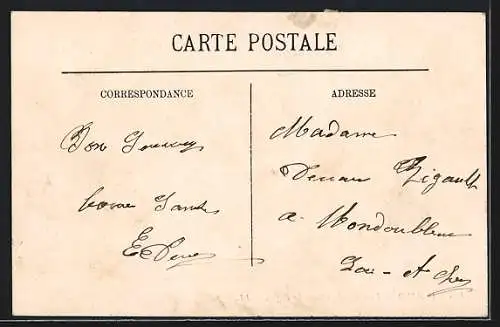 CARTE POSTALE
CORRESPONDANCE
ADRESSE
Bon
bonne Santé
Madame
Rigault
a Mondoubleau
Loir-et-Cher